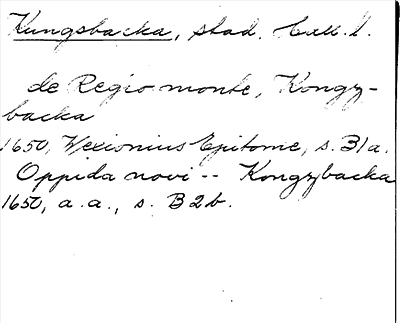 Kungsbacka, stad,
de Regio monte, Kongz-
backa
1650, Wexionius Epitome, s. B1a.
Oppida novi -- Kongzbacka
1650, a. a., s. B2b.